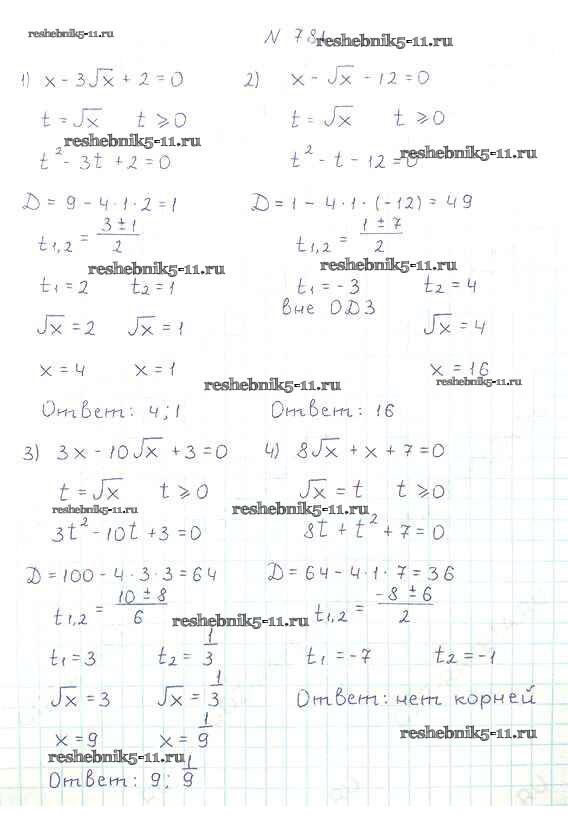 reshebnik5-11.ru
N 781
reshebnik5-11.ru
1) x - 3√x + 2 = 0
t = √x t ≥ 0
reshebnik5-11.ru
t² - 3t + 2 = 0
D = 9 - 4·1·2 = 1
t1,2 = (3 ± 1)/2
reshebnik5-11.ru
t1 = 2 t2 = 1
√x = 2 √x = 1
x = 4 x = 1
Ответ: 4; 1
2) x - √x - 12 = 0
t = √x t ≥ 0
t² - t - 12 = 0
reshebnik5-11.ru
D = 1 - 4·1·(-12) = 49
t1,2 = (1 ± 7)/2
reshebnik5-11.ru
t1 = -3 t2 = 4
вне ОДЗ
√x = 4
x = 16
reshebnik5-11.ru
reshebnik5-11.ru
Ответ: 16
3) 3x - 10√x + 3 = 0
t = √x t ≥ 0
reshebnik5-11.ru
3t² - 10t + 3 = 0
D = 100 - 4·3·3 = 64
t1,2 = (10 ± 8)/6
reshebnik5-11.ru
t1 = 3 t2 = 1/3
√x = 3 √x = 1/3
x = 9 x = 1/9
reshebnik5-11.ru
Ответ: 9; 1/9
4) 8√x + x + 7 = 0
√x = t t ≥ 0
reshebnik5-11.ru
8t + t² + 7 = 0
D = 64 - 4·1·7 = 36
t1,2 = (-8 ± 6)/2
t1 = -7 t2 = -1
Ответ: нет корней
reshebnik5-11.ru